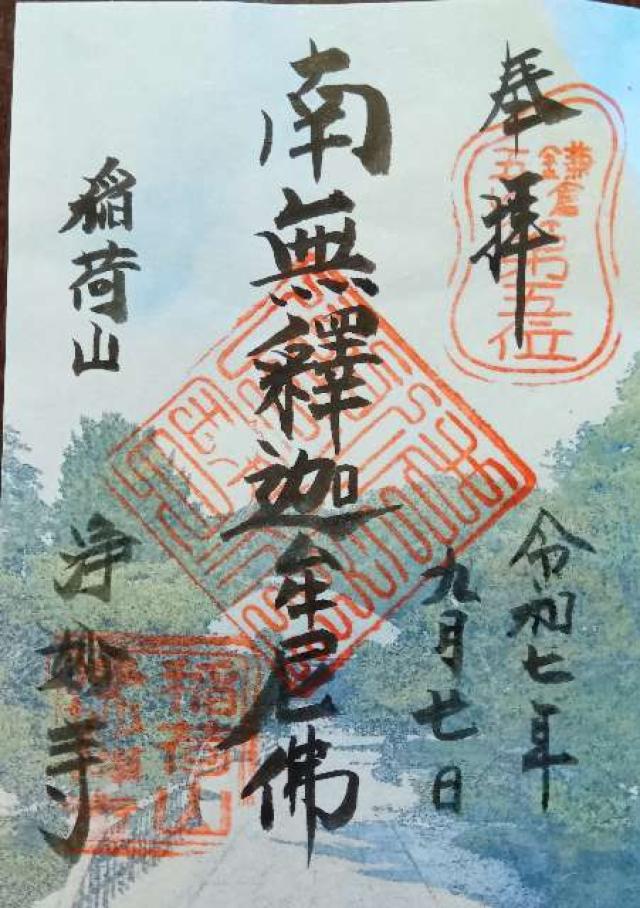 奉拝
鎌倉
五山第五位
令和七年
九月廿日
南無釋迦牟尼佛
稲荷山
浄妙寺
稲荷山